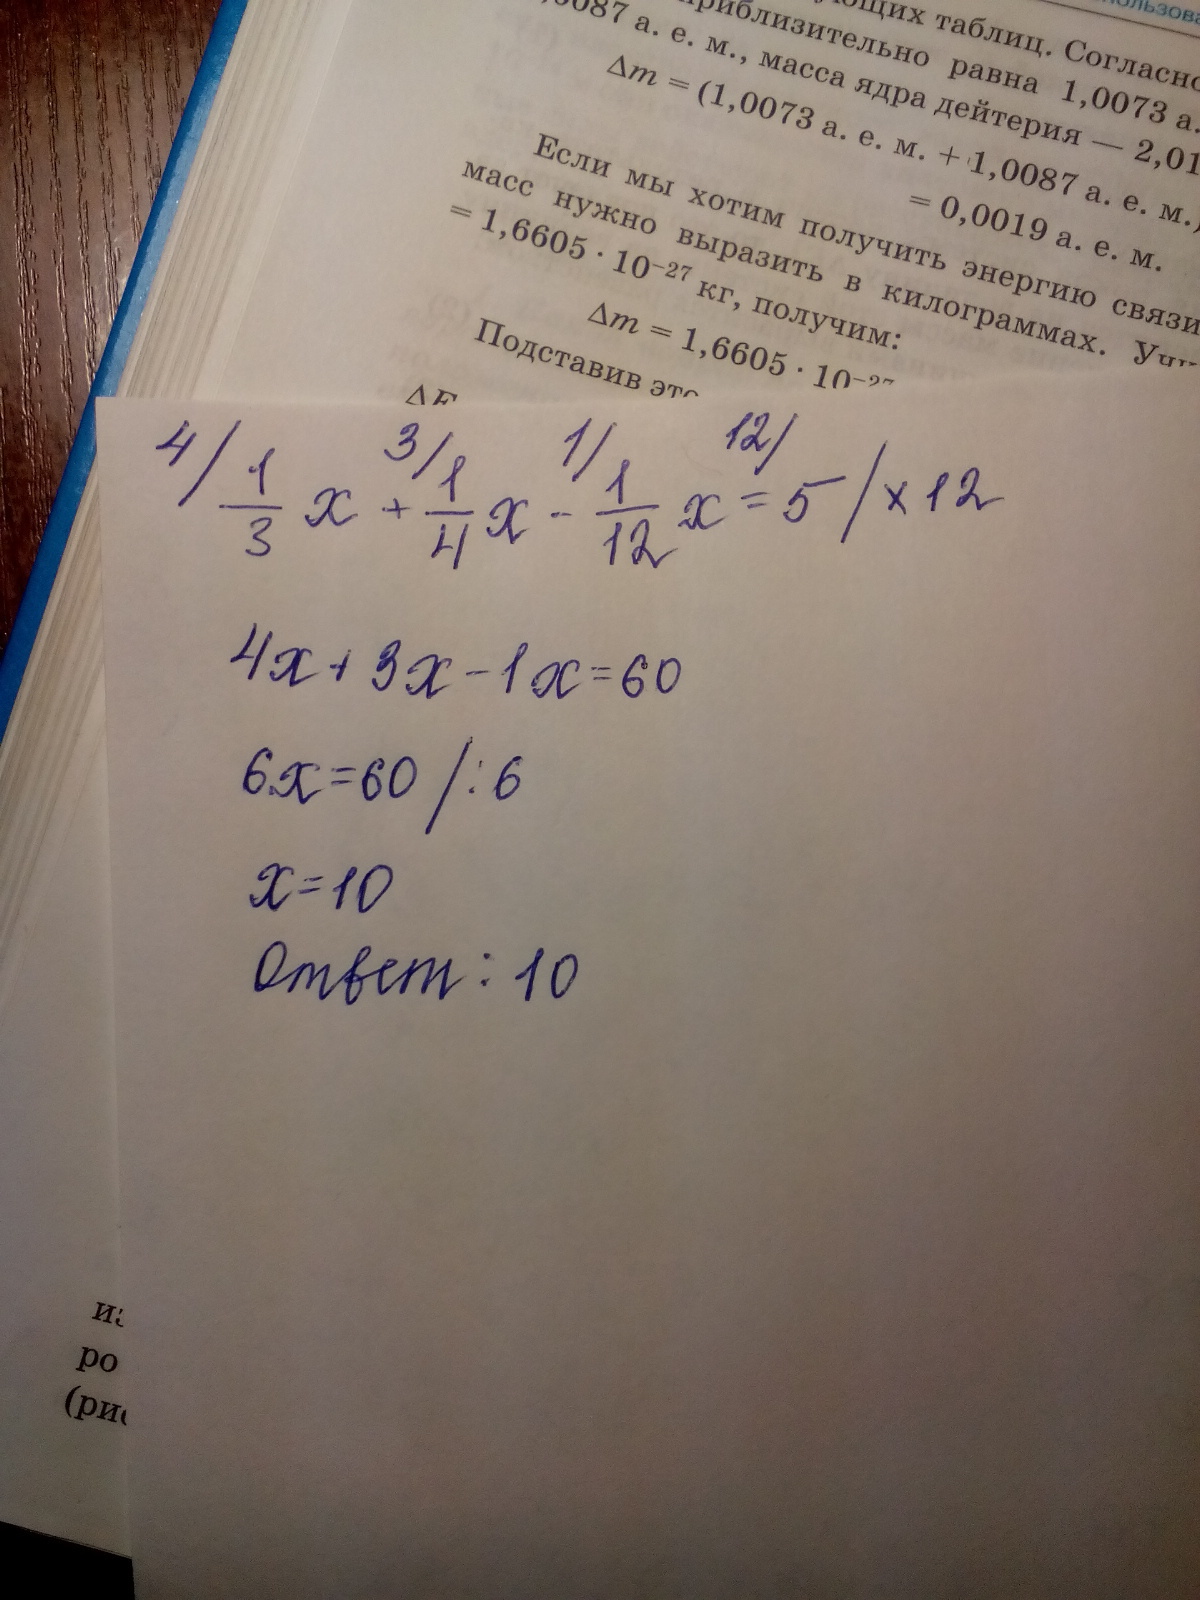 пользова
ующих таблиц. Согласно
приблизительно равна 1,0073 а.
0087 а. е. м., масса ядра дейтерия — 2,01
Δm = (1,0073 а. е. м. + 1,0087 а. е. м.,
= 0,0019 а. е. м.
Если мы хотим получить энергию связи
масс нужно выразить в килограммах. Учи
= 1,6605 · 10⁻²⁷ кг, получим:
Δm = 1,6605 · 10⁻²⁷
Подставив это
ΔE
4/ 3/ 1/ 12/
1/3 x + 1/4 x - 1/12 x = 5 / x 12
4x + 3x - 1x = 60
6x = 60 / : 6
x = 10
Ответ : 10
из
ро
(рис